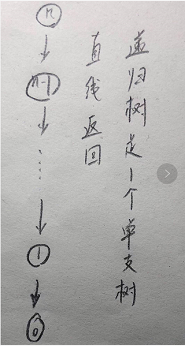 n
n-1
1
0
直线返回
递归树是1个单支树